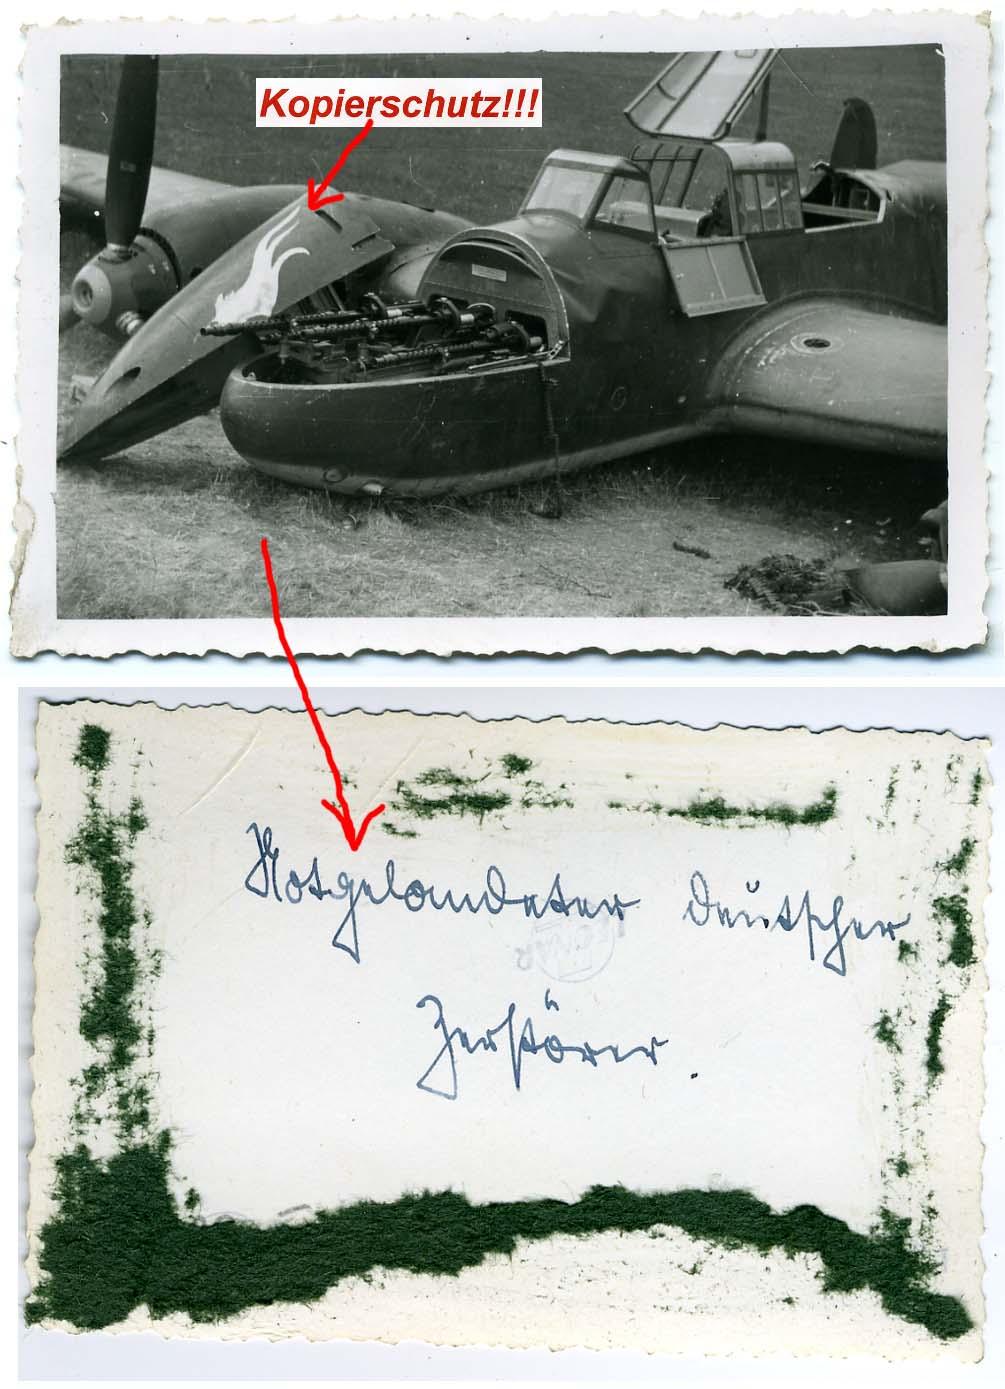 Kopierschutz!!!
Notgelandeter deutscher
Zerstörer.